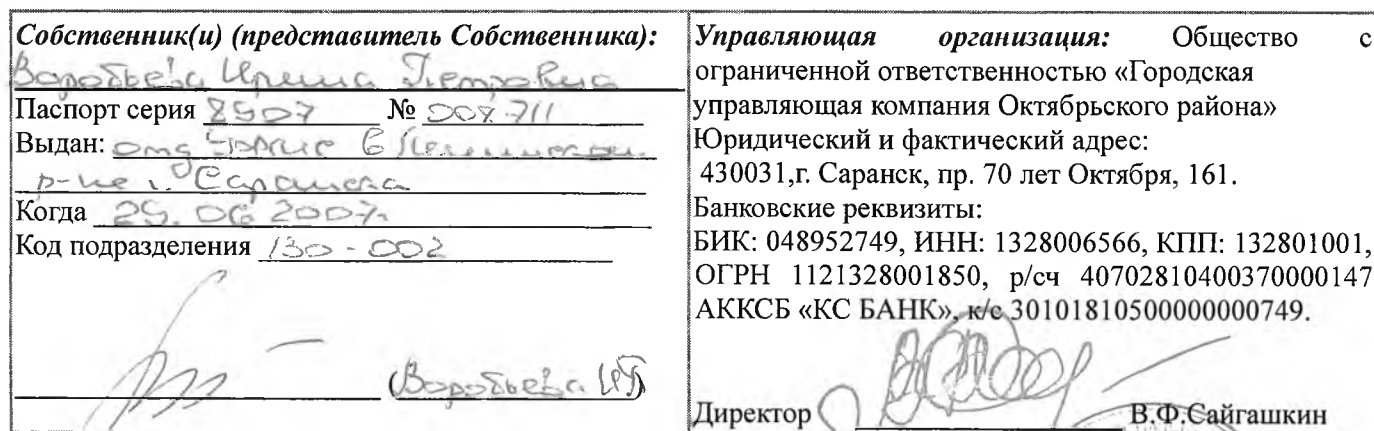 Собственник(и) (представитель Собственника):
Воробьева Ирина Петровна
Паспорт серия 8907 № 008711
Выдан: отд УФМС в Ленинском
р-не г. Саранска
Когда 25.06 2007г.
Код подразделения 130-002
(Воробьева ИП)
Управляющая организация: Общество с
ограниченной ответственностью «Городская
управляющая компания Октябрьского района»
Юридический и фактический адрес:
430031,г. Саранск, пр. 70 лет Октября, 161.
Банковские реквизиты:
БИК: 048952749, ИНН: 1328006566, КПП: 132801001,
ОГРН 1121328001850, р/сч 40702810400370000147
АККСБ «КС БАНК», к/с 30101810500000000749.
Директор В.Ф.Сайгашкин